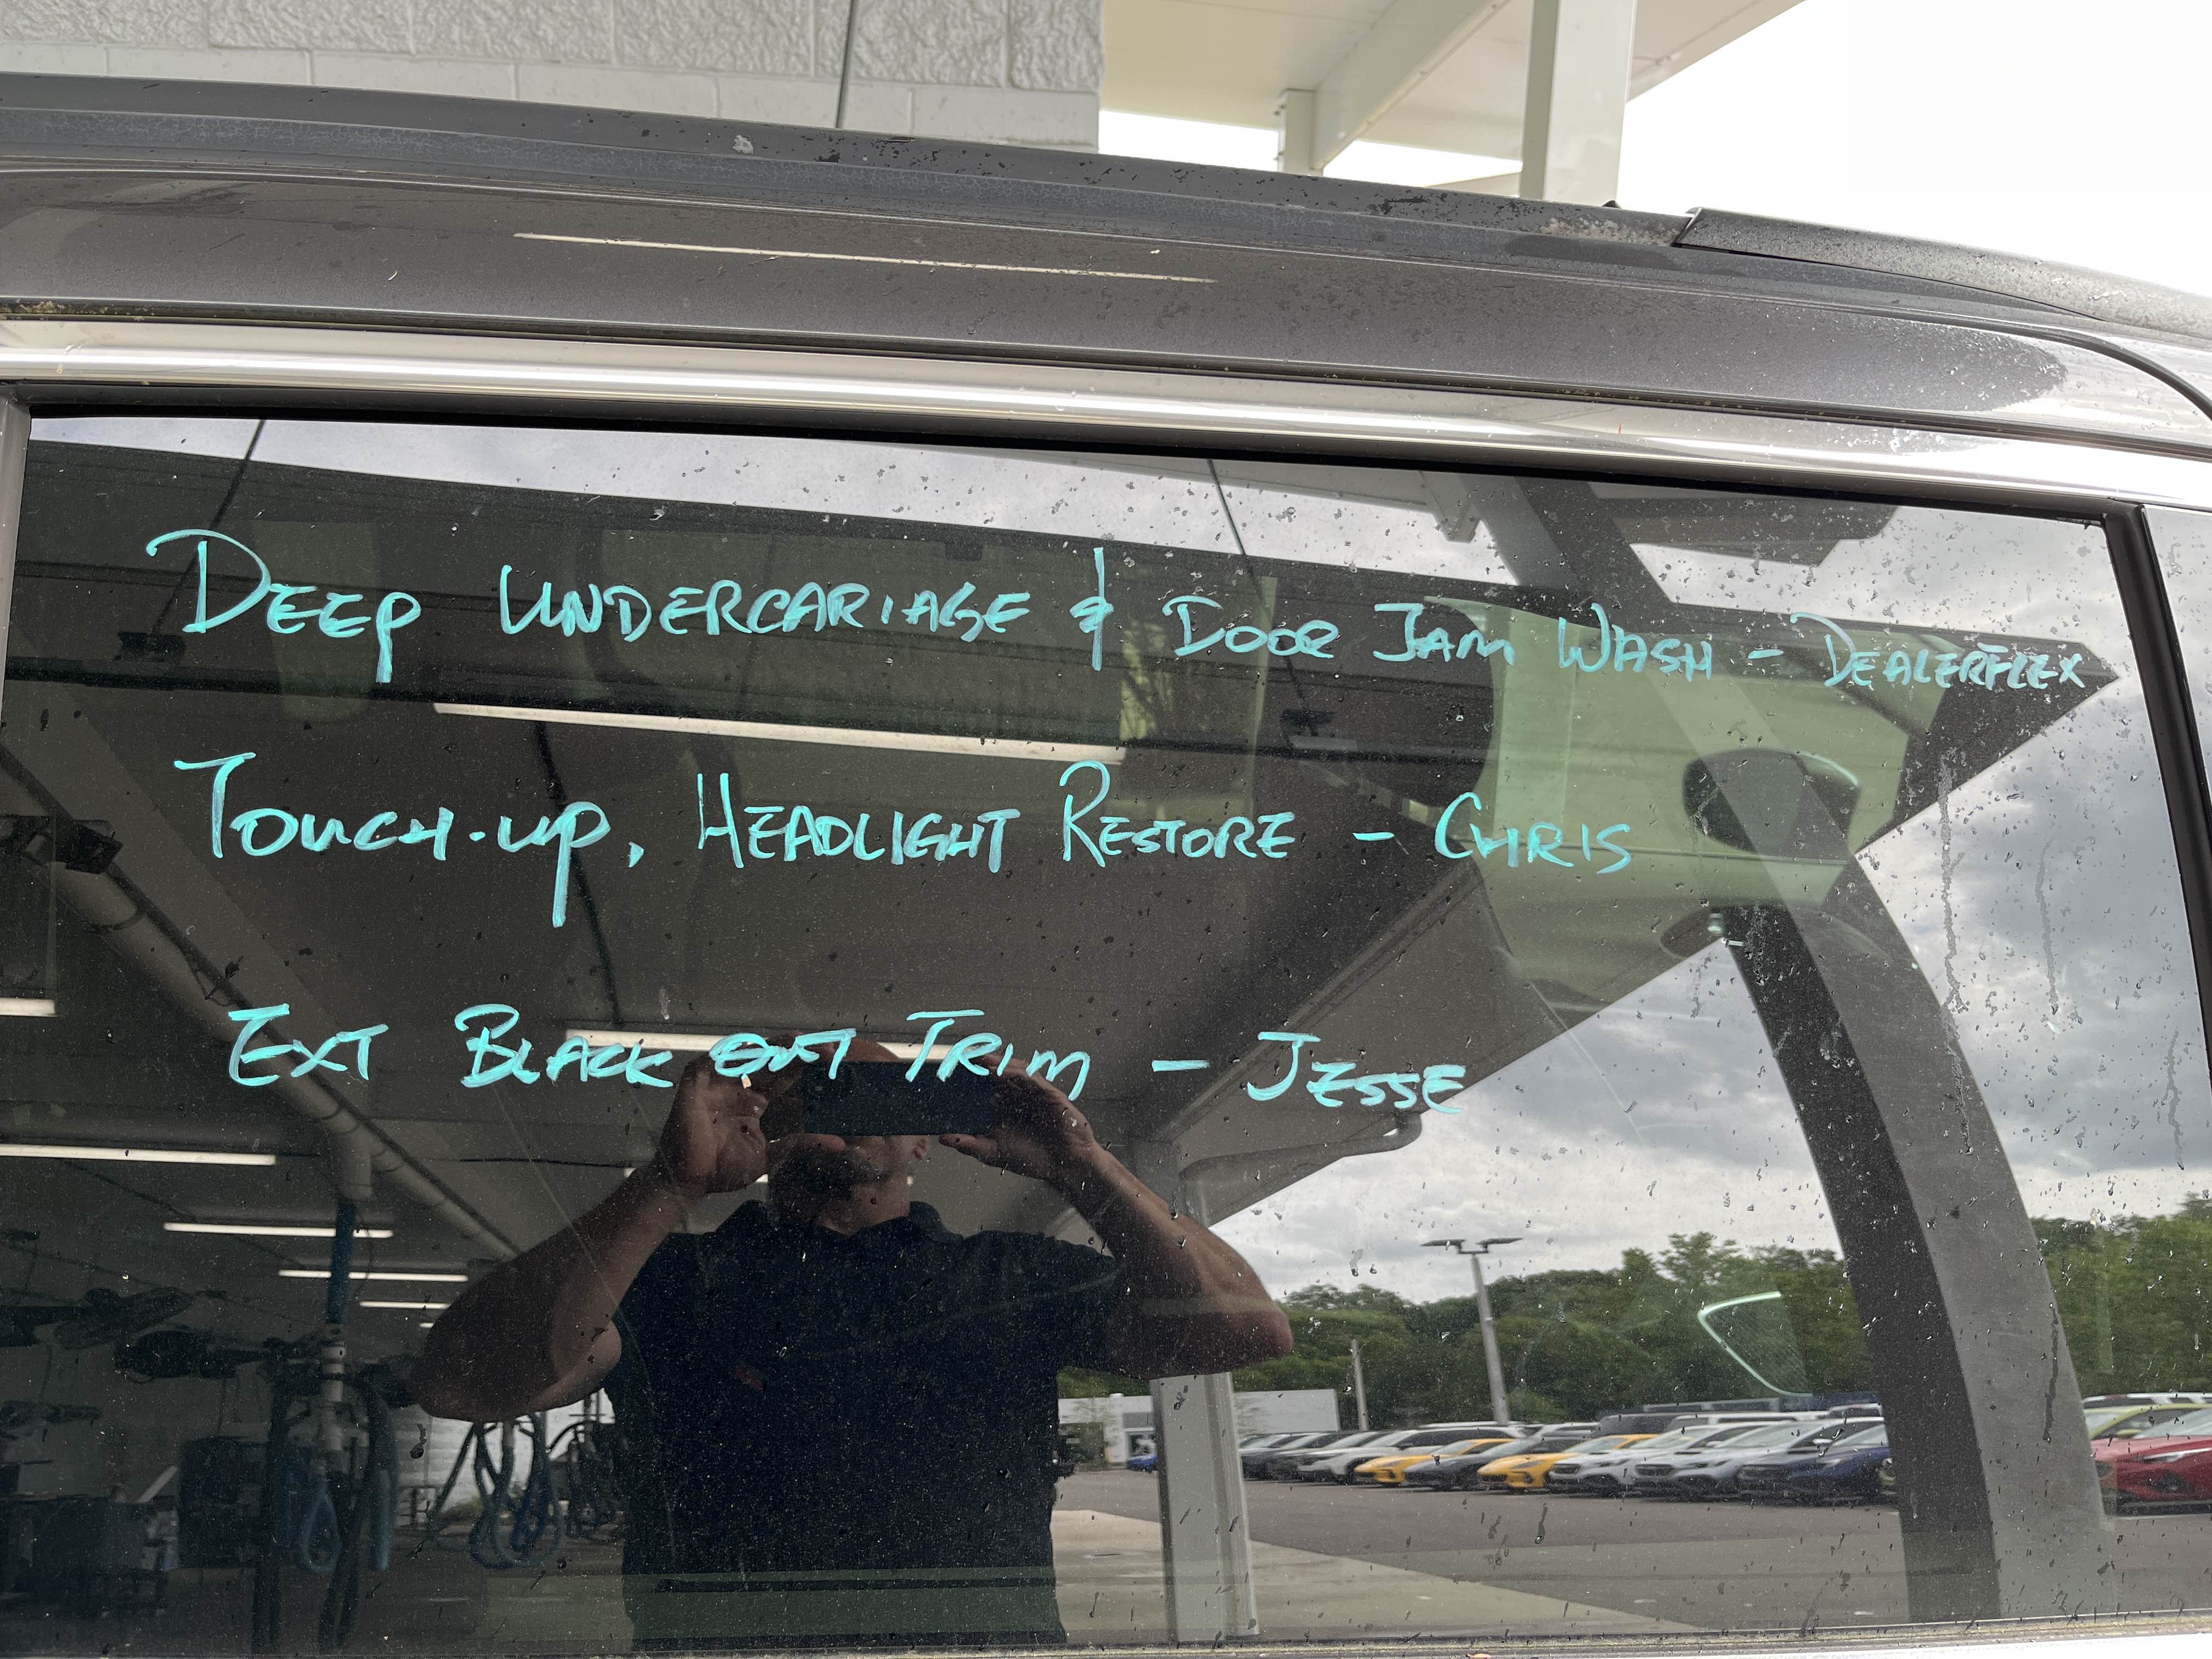 DEEP UNDERCARIAGE & DOOR JAM WASH - DEALERFLEX
TOUCH-UP, HEADLIGHT RESTORE - CHRIS
EXT BLACK OUT TRIM - JESSE